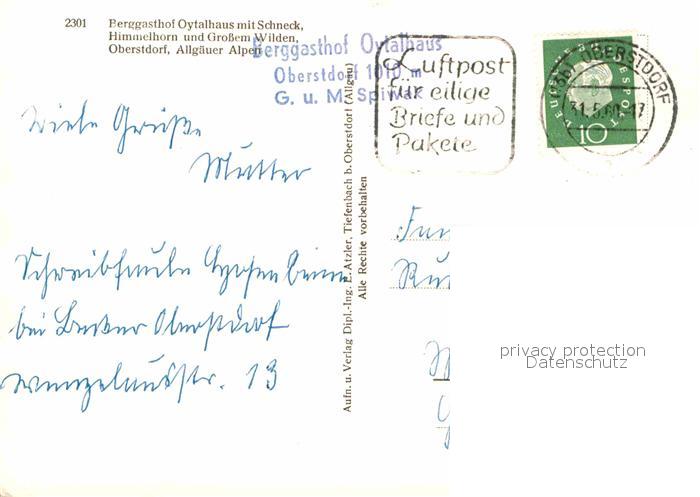 2301 Berggasthof Oytalhaus mit Schneck,
Himmelhorn und Großem Wilden,
Oberstdorf, Allgäuer Alpen
Berggasthof Oytalhaus
Oberstdorf 1010 m
G. u. M. Spiwak
Luftpost
für eilige
Briefe und
Pakete
OBERSTDORF
31.5.60-17
DEUTSCHE BUNDESPOST
10
Viele Grüße
Mutter
bei Becker Oberstdorf
str. 13
Aufn. u. Verlag Dipl.-Ing. E. Atzler, Tiefenbach b. Oberstdorf (Allgäu)
Alle Rechte vorbehalten
privacy protection
Datenschutz